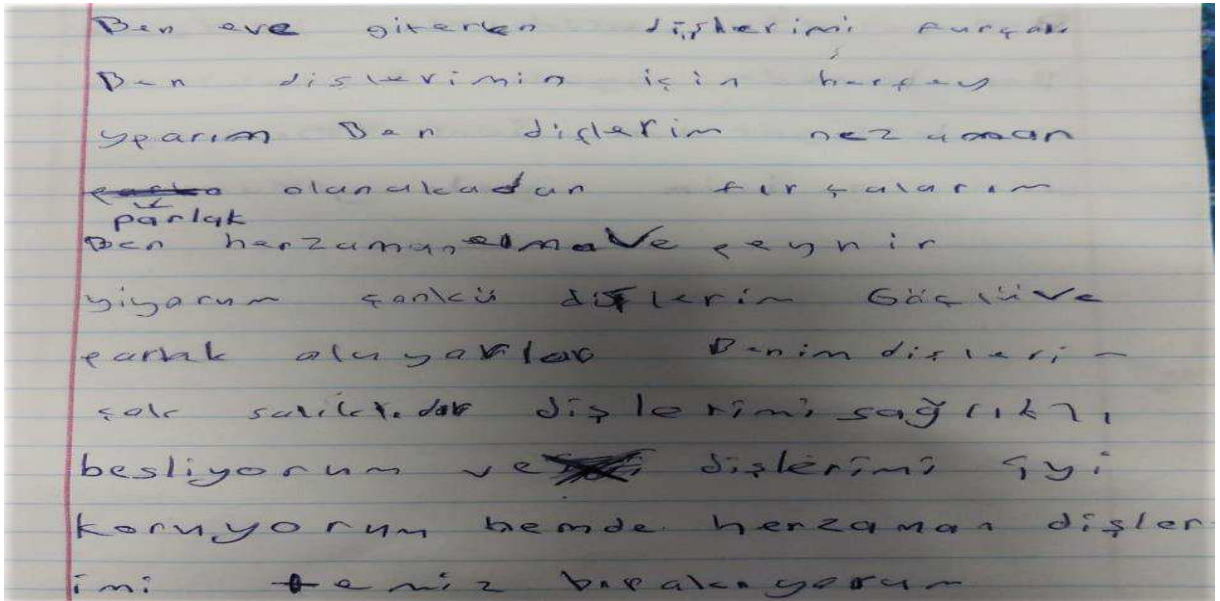 Ben eve giterken dişlerimi furçalı
Ben dişlerimin için herşey
yparım Ben dişlerim nezaman
olanakadan fırçalarım
parlak
Ben herzaman elma Ve peynir
yiyorum çonkü dişlerim Göçlü Ve
parlak oluyorlar Benim dişlerim
çok dişlerimi sağlıklı
besliyorum ve dişlerimi iyi
koruyorum hemde herzaman dişler
imi temiz bırakıyorum